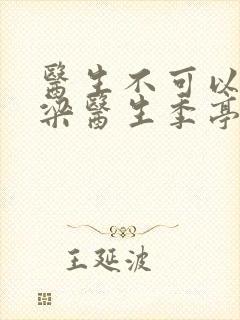 醫生不可以
梁醫生季亭
王延波